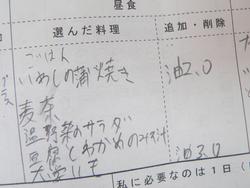 昼食
選んだ料理
追加・削除
ごはん
いわしの蒲焼き
油、0
麦茶
温野菜のサラダ
豆腐とわかめのみそ汁
大豆
私に必要なのは1日